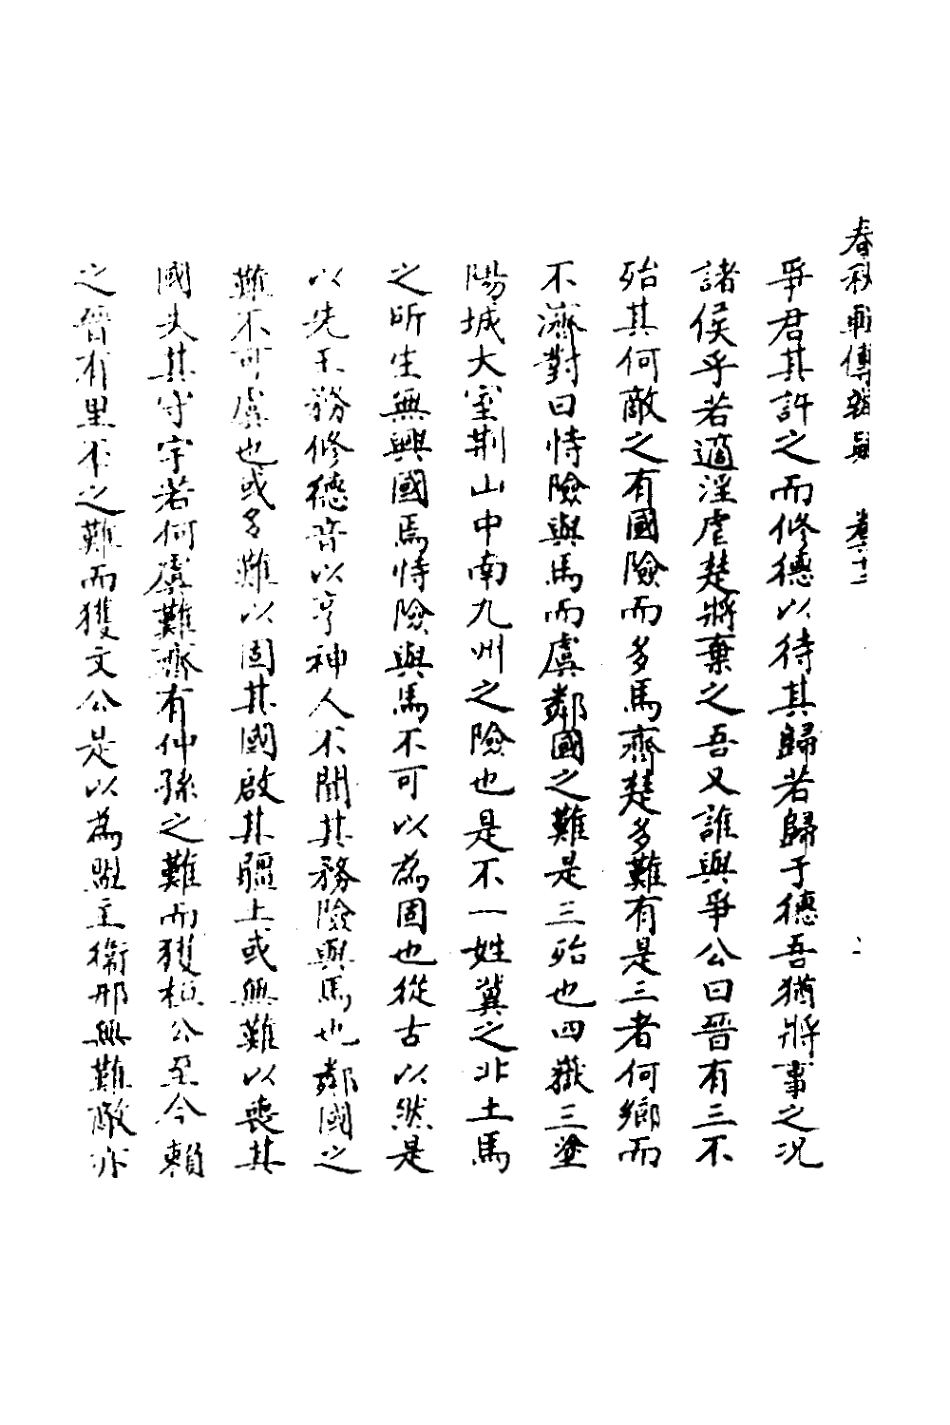 春秋輯傳辨疑 卷六十二 二
爭君其許之而修德以待其歸若歸于德吾猶將事之况
諸侯乎若適淫虐楚將棄之吾又誰與爭公曰晉有三不
殆其何敵之有國險而多馬齊楚多難有是三者何鄉而
不濟對曰恃險與馬而虞鄰國之難是三殆也四嶽三塗
陽城大室荆山中南九州之險也是不一姓冀之北土馬
之所生無興國焉恃險與馬不可以為固也從古以然是
以先王務修德音以亨神人不聞其務險與馬也鄰國之
難不可虞也或多難以固其國啟其疆土或無難以喪其
國失其守宇若何虞難齊有仲孫之難而獲桓公至今賴
之晉有里丕之難而獲文公是以為盟主衞邢無難敵亦